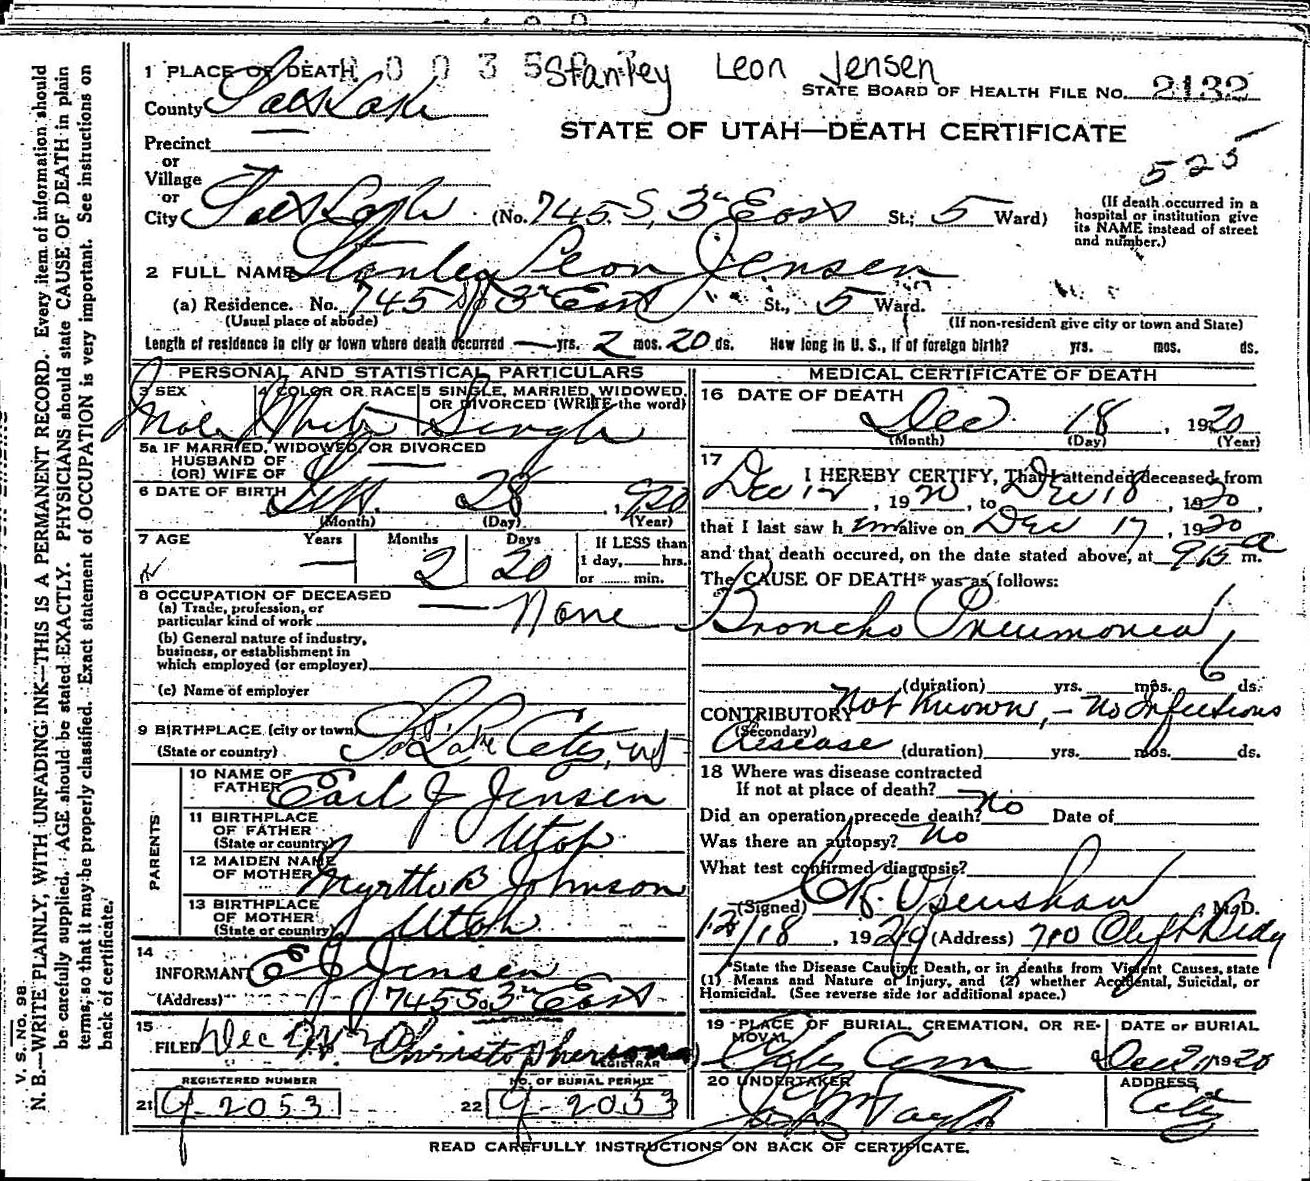 Stanley Leon Jensen
1 PLACE OF DEATH
STATE BOARD OF HEALTH FILE NO. 2132
County Salt Lake
STATE OF UTAH—DEATH CERTIFICATE
Precinct
or
Village
525
or
City Salt Lake (No. 745 S, 3rd East St.; 5 Ward)
(If death occurred in a hospital or institution give its NAME instead of street and number.)
2 FULL NAME Stanley Leon Jensen
(a) Residence. No. 745 So 3rd East St., 5 Ward.
(Usual place of abode) (If non-resident give city or town and State)
Length of residence in city or town where death occurred — yrs. 2 mos. 20 ds. How long in U. S., if of foreign birth? yrs. mos. ds.
PERSONAL AND STATISTICAL PARTICULARS
3 SEX Male
4 COLOR OR RACE White
5 SINGLE, MARRIED, WIDOWED, OR DIVORCED (WRITE the word) Single
5a IF MARRIED, WIDOWED, OR DIVORCED
HUSBAND OF
(OR) WIFE OF
6 DATE OF BIRTH Sept. 28, 1920
(Month) (Day) (Year)
7 AGE Years — Months 2 Days 20
If LESS than 1 day, hrs. or min.
8 OCCUPATION OF DECEASED
(a) Trade, profession, or particular kind of work — None
(b) General nature of industry, business, or establishment in which employed (or employer)
(c) Name of employer
9 BIRTHPLACE (city or town)
(State or country) Salt Lake City, Ut
PARENTS
10 NAME OF FATHER Earl J Jensen
11 BIRTHPLACE OF FATHER (State or country) Utah
12 MAIDEN NAME OF MOTHER Myrtle B Johnson
13 BIRTHPLACE OF MOTHER (State or country) Utah
14
INFORMANT E J Jensen
(Address) 745 So. 3rd East
15
FILED Dec Christopherson
REGISTRAR
REGISTERED NUMBER
21 G-2053
NO. OF BURIAL PERMIT
22 G-2053
MEDICAL CERTIFICATE OF DEATH
16 DATE OF DEATH
Dec 18, 1920
(Month) (Day) (Year)
17 I HEREBY CERTIFY, That I attended deceased from
Dec 12, 1920, to Dec 18, 1920,
that I last saw h im alive on Dec 17, 1920
and that death occured, on the date stated above, at 915 a m.
The CAUSE OF DEATH* was as follows:
Broncho Pneumonia
(duration) yrs. mos. 6 ds.
CONTRIBUTORY Not Known, - No Infectious
(Secondary)
Disease (duration) yrs. mos. ds.
18 Where was disease contracted
If not at place of death?
Did an operation precede death? No Date of
Was there an autopsy? No
What test confirmed diagnosis?
(Signed) Openshaw M. D.
12/18, 1920 (Address) 710 Clift Bldg
*State the Disease Causing Death, or in deaths from Violent Causes, state
(1) Means and Nature of Injury, and (2) whether Accidental, Suicidal, or
Homicidal. (See reverse side for additional space.)
19 PLACE OF BURIAL, CREMATION, OR REMOVAL City Cem
DATE OF BURIAL Dec 21, 1920
20 UNDERTAKER Taylor
ADDRESS City
READ CAREFULLY INSTRUCTIONS ON BACK OF CERTIFICATE.
V. S. No. 98
N. B.—WRITE PLAINLY, WITH UNFADING INK—THIS IS A PERMANENT RECORD. Every item of information should
be carefully supplied. AGE should be stated EXACTLY. PHYSICIANS should state CAUSE OF DEATH in plain
terms, so that it may be properly classified. Exact statement of OCCUPATION is very important. See instructions on
back of certificate.